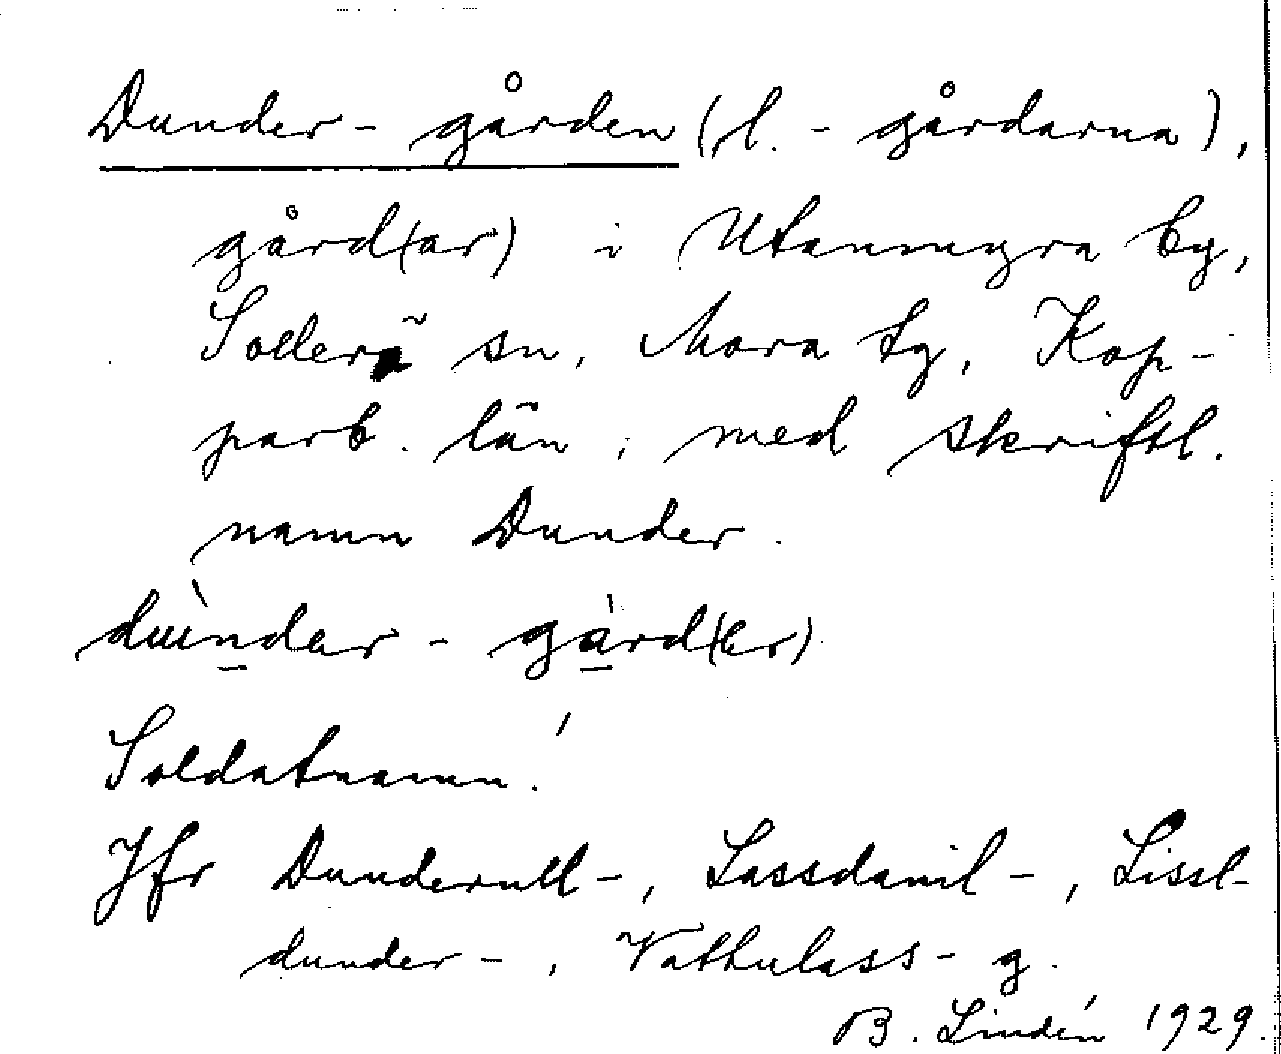 Dunder-gården (l. -gårdarna),
gård(ar) i Utanmyra by,
Sollerö sn, Mora tg, Kop-
parb. län; med skriftl.
namn Dunder.
dùndar-gàrd(er)
Soldatnamn.
Jfr Dunderull-, Lassdanil-, Lissl-
dunder-, Vathulass-g.
B. Lindén 1929.